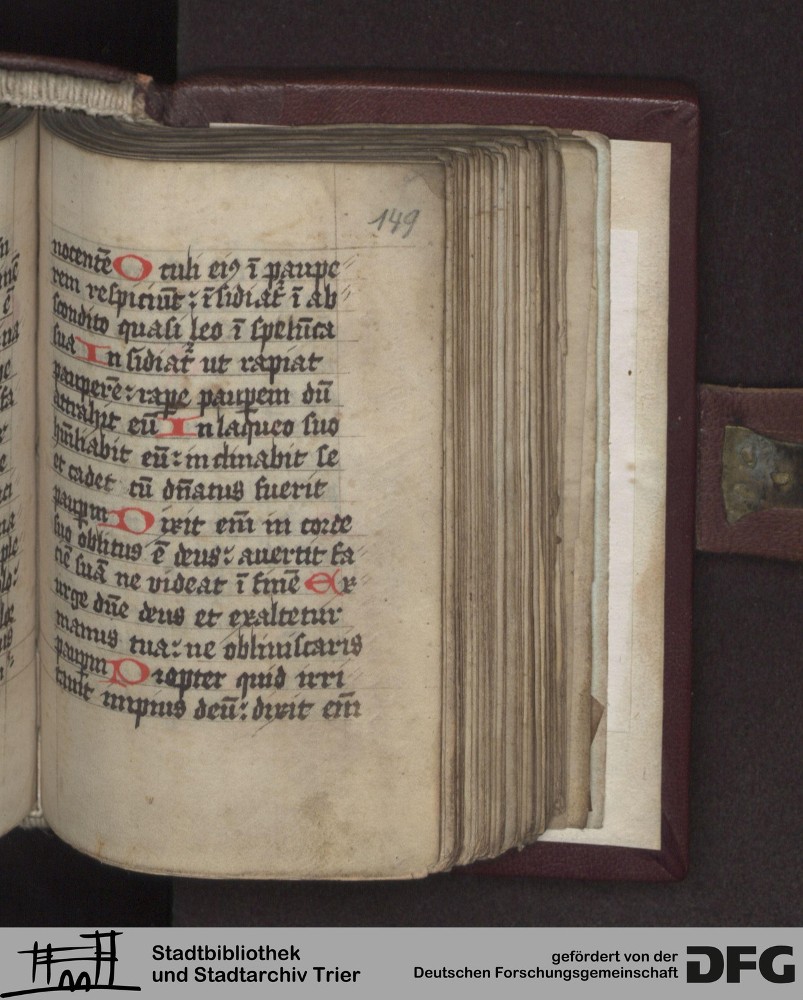 149
nocentē Oculi ei⁹ ī paupe
rem respiciūt: īsidiat᷑ ī ab
scondito quasi leo ī spelūca
sua In sidiat᷑ ut rapiat
pauperē: rape paupem dū
attrahit eū In laqueo suo
hūiliabit eū: inclinabit se
et cadet cū dn̄atus fuerit
paupm Dixit em̄ in corde
suo oblitus ē deus: auertit fa
ciē suā ne videat ī finē Ex
urge dn̄e deus et exaltetur
manus tua: ne obliuiscaris
paupm Propter quid irri
tauit impius deū: dixit em̄
Stadtbibliothek
und Stadtarchiv Trier
gefördert von der
Deutschen Forschungsgemeinschaft
DFG